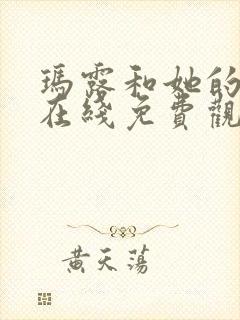 瑪露和她的
在綫免費觀
黃天蕩